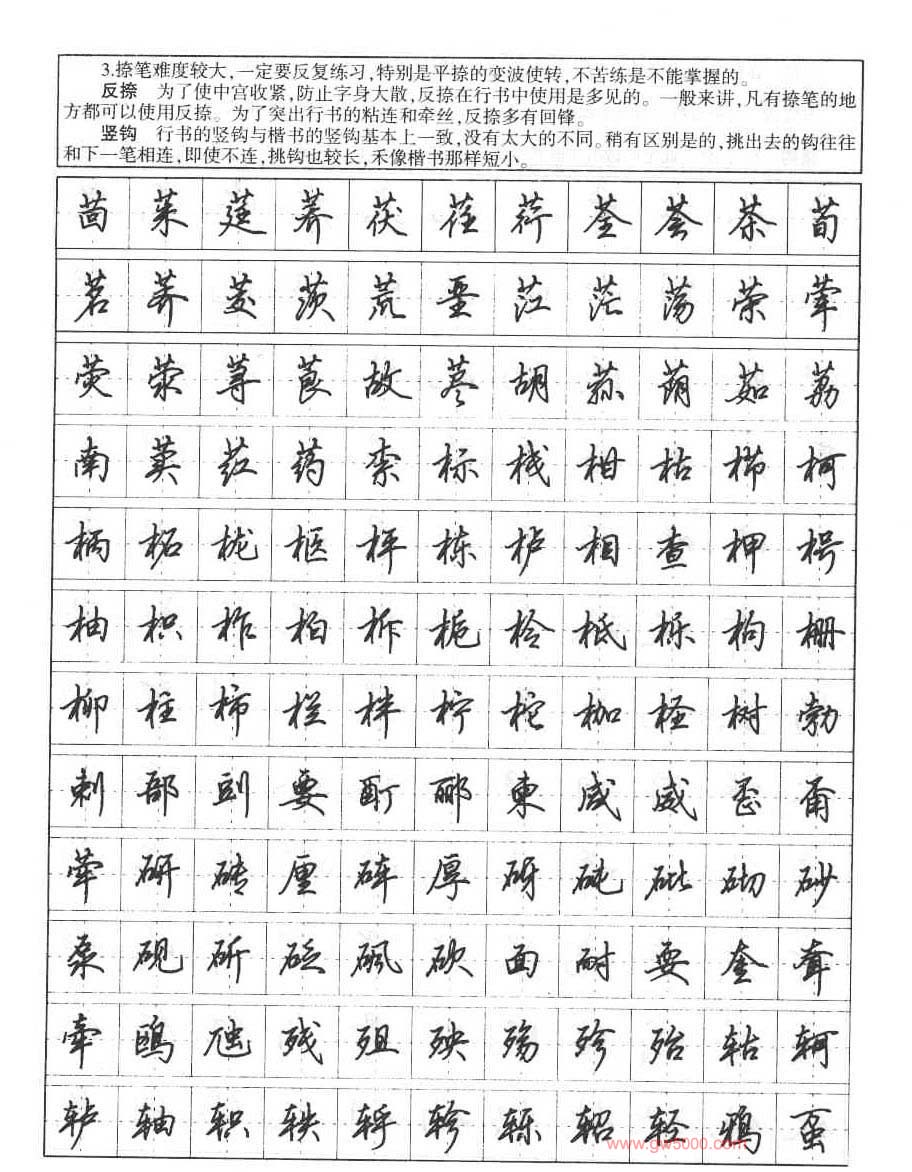 3.捺笔难度较大,一定要反复练习,特别是平捺的变波使转,不苦练是不能掌握的。
反捺 为了使中宫收紧,防止字身大散,反捺在行书中使用是多见的。一般来讲,凡有捺笔的地
方都可以使用反捺。为了突出行书的粘连和牵丝,反捺多有回锋。
竖钩 行书的竖钩与楷书的竖钩基本上一致,没有太大的不同。稍有区别是的,挑出去的钩往往
和下一笔相连,即使不连,挑钩也较长,禾像楷书那样短小。
茴 茱 莛 荞 茯 荏 荇 荃 荟 茶 荀
茗 荠 茭 茨 荒 垩 茳 茫 荡 荣 荤
荧 荥 荨 茛 故 荩 胡 荪 荫 茹 荔
南 荬 荭 药 柰 标 栈 柑 枯 栉 柯
柄 柘 栊 柩 枰 栋 栌 相 查 柙 枵
柚 枳 柞 柏 柝 栀 柃 柢 栎 枸 栅
柳 柱 柿 栏 柈 柠 柁 枷 柽 树 勃
剌 部 剅 要 酊 郦 柬 咸 威 歪 甭
研 砖 厘 砗 厚 砑 砘 砒 砌 砂
泵 砚 斫 砭 砜 砍 面 耐 耍 奎 耷
牵 鸥 虺 残 殂 殃 殇 殄 殆 轱 轲
轳 轴 轵 轶 轷 轸 轹 轺 轻 鸦 虿
www.gw5000.com